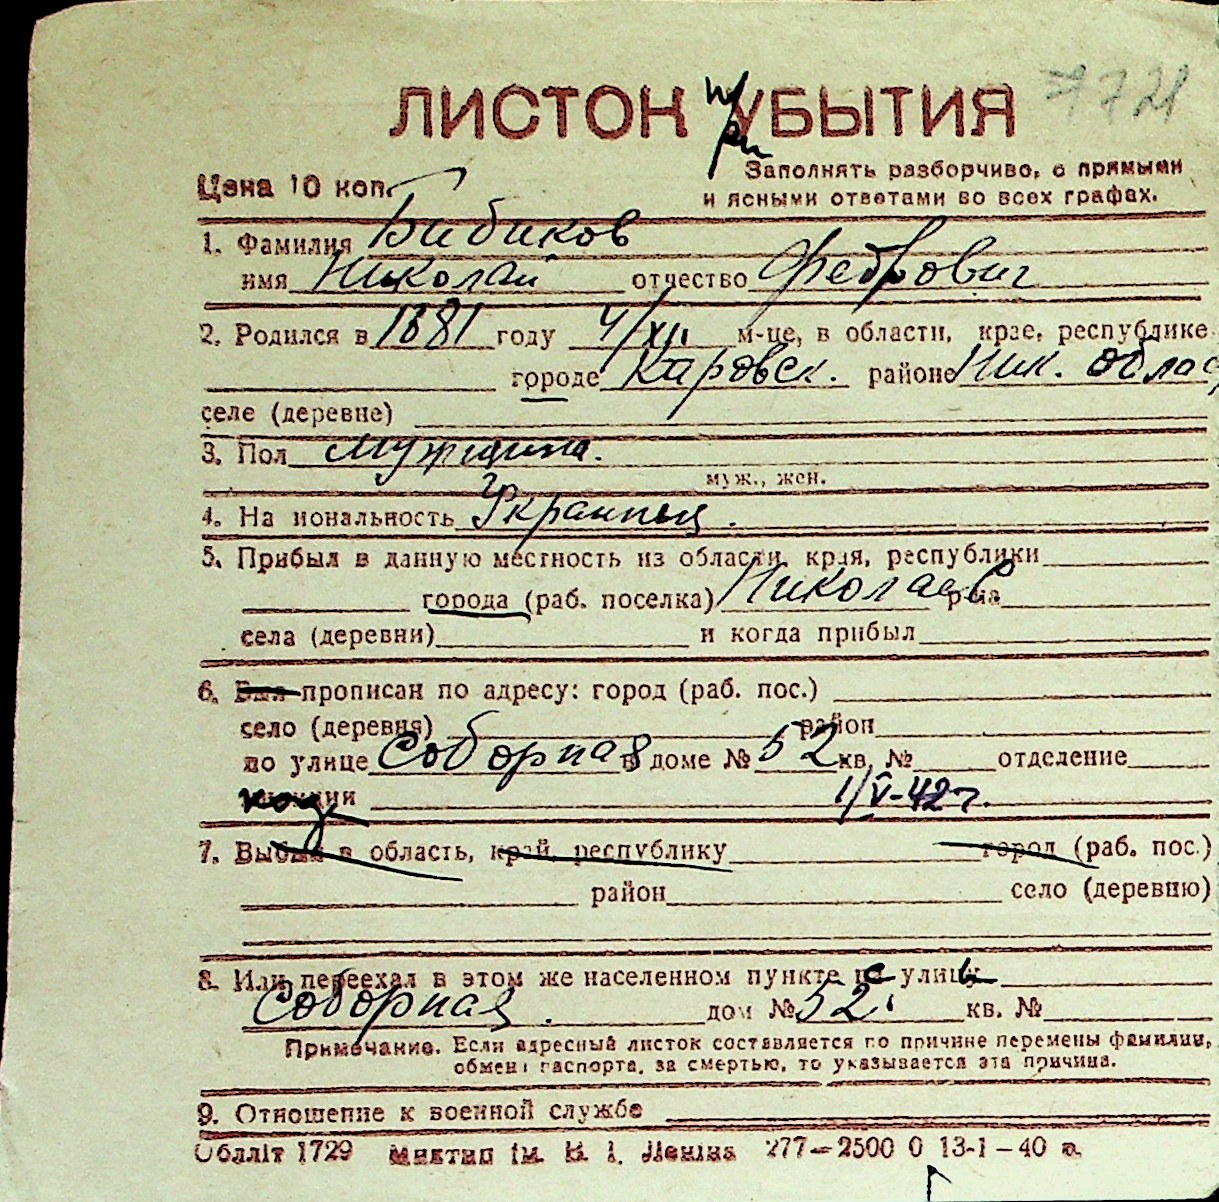 ЛИСТОК УБЫТИЯ 7721
при
Цена 10 коп.
Заполнять разборчиво, с прямыми
и ясными ответами во всех графах.
1. Фамилия Бибиков
имя Николай отчество Федорович
2. Родился в 1881 году 4/XII м-це, в области, крае, республике
городе Каровск. районе Ник. облас
селе (деревне)
3. Пол мужщина.
муж., жен.
4. Национальность Украинец.
5. Прибыл в данную местность из области, края, республики
города (раб. поселка) Николаев р-на
села (деревни) и когда прибыл
6. Был прописан по адресу: город (раб. пос.)
село (деревня) район
по улице Соборная в доме № 52 кв. № отделение
1/V-42 г.
7. Выбыл в область, край, республику город (раб. пос.)
район село (деревню)
8. Или переехал в этом же населенном пункте с улицы
Соборная. дом № 52. кв. №
Примечание. Если адресный листок составляется по причине перемены фамилии,
обмена паспорта, за смертью, то указывается эта причина.
9. Отношение к военной службе
Обліт 1729 Миктип ім. В. І. Леніна 277—2500 0 13-1-40 г.